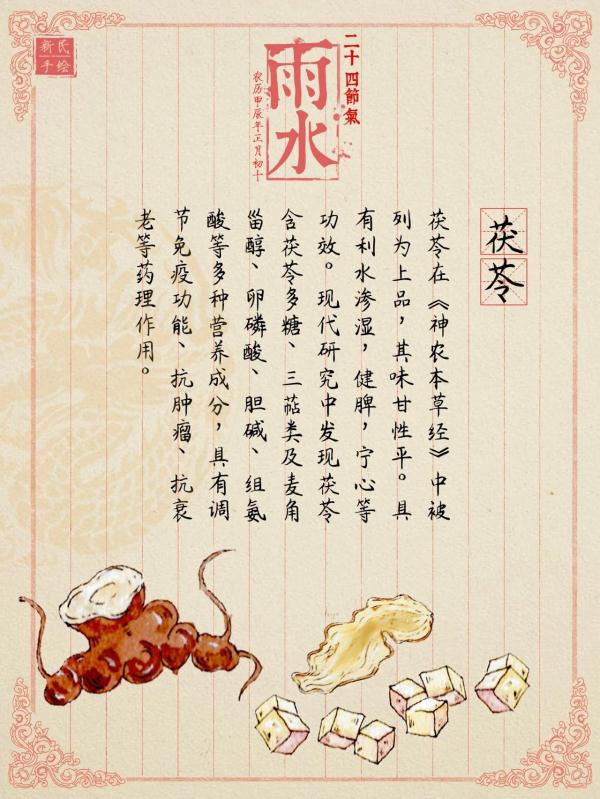 新民
手绘
二十四節氣
雨水
农历甲辰年正月初十
茯苓
茯苓在《神农本草经》中被
列为上品，其味甘性平。具
有利水渗湿，健脾，宁心等
功效。现代研究中发现茯苓
含茯苓多糖、三萜类及麦角
甾醇、卵磷酸、胆碱、组氨
酸等多种营养成分，具有调
节免疫功能、抗肿瘤、抗衰
老等药理作用。